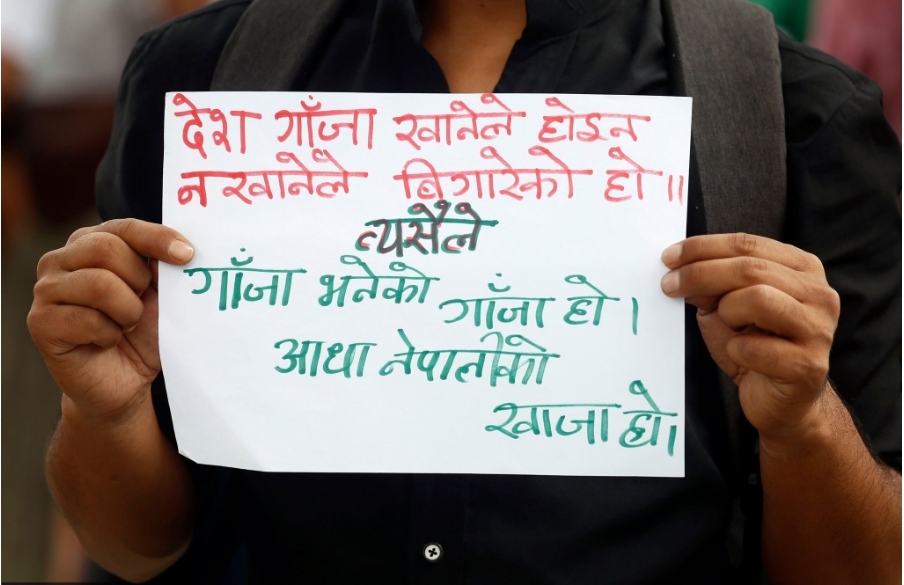 देश गाँजा खानेले होइन
न खानेले बिगारेको हो॥
त्यसैले
गाँजा भनेको गाँजा हो।
आधा नेपालीको
खाजा हो।